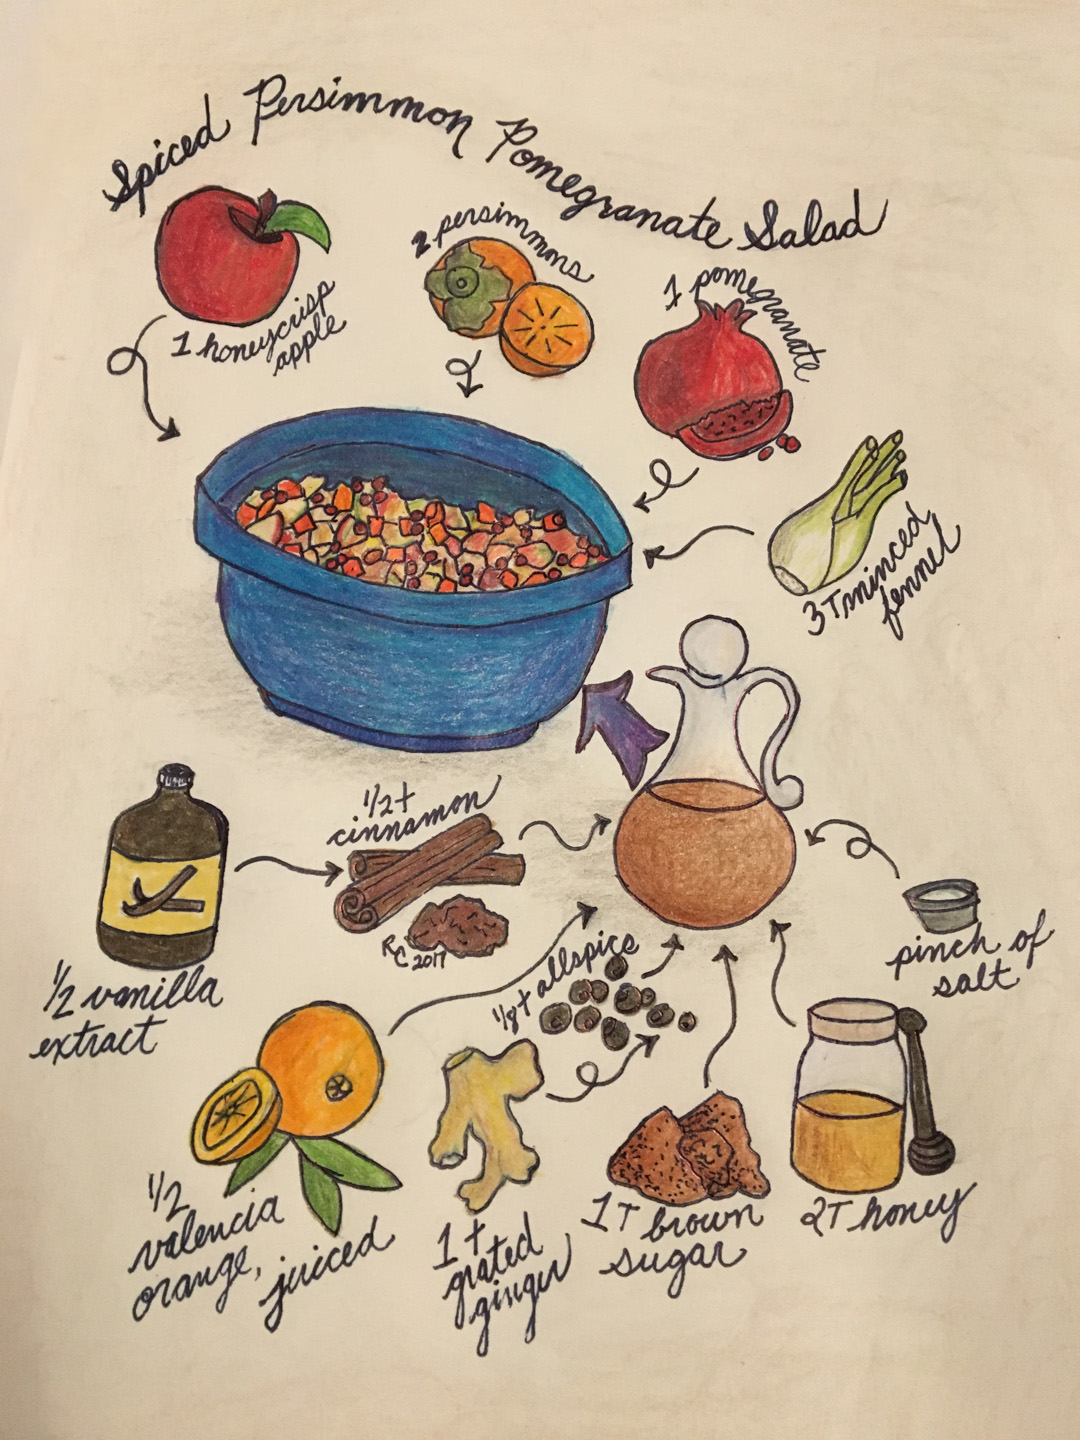 Spiced Persimmon Pomegranate Salad
1 honeycrisp
apple
2 persimmons
1 pomegranate
3T minced
fennel
1/2 t
cinnamon
RC 2017
1/2 vanilla
extract
1/8 t allspice
pinch of
salt
1/2
valencia
orange,
juiced
1 t
grated
ginger
1T brown
sugar
2T honey